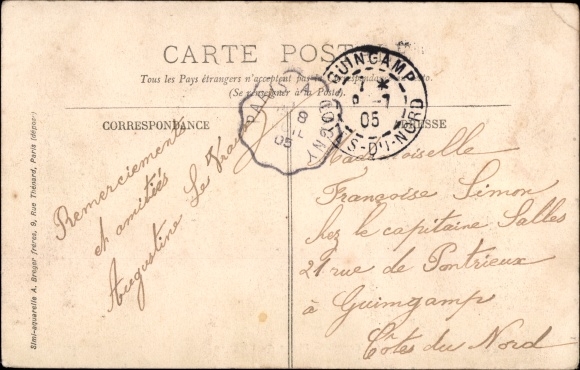 CARTE POSTALE
Tous les Pays étrangers n'acceptent pas la Correspondance au recto.
(Se renseigner à la Poste).
CORRESPONDANCE
ADRESSE
GUINGAMP
CÔTES-DU-NORD
05
8
05
Remerciements
et amitiés
Augustine Le
Mademoiselle
Françoise Simon
chez le capitaine Salles
21 rue de Pontrieux
à Guimgamp
Côtes du Nord
Simi-aquarelle A. Breger frères, 9, Rue Thénard, Paris (déposé)